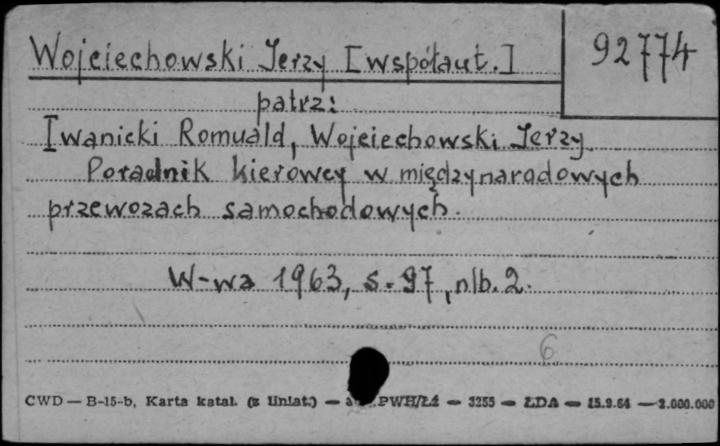 Wojciechowski Jerzy [współaut.]
92774
patrz:
Iwanicki Romuald, Wojciechowski Jerzy
Poradnik kierowcy w międzynarodowych
przewozach samochodowych.
W-wa 1963, s. 97, nlb. 2.
6
CWD — B-15-b, Karta katal. (z liniat.) — PWH/Łź — 3255 — ŁDA — 15.9.64 — 2.000.000